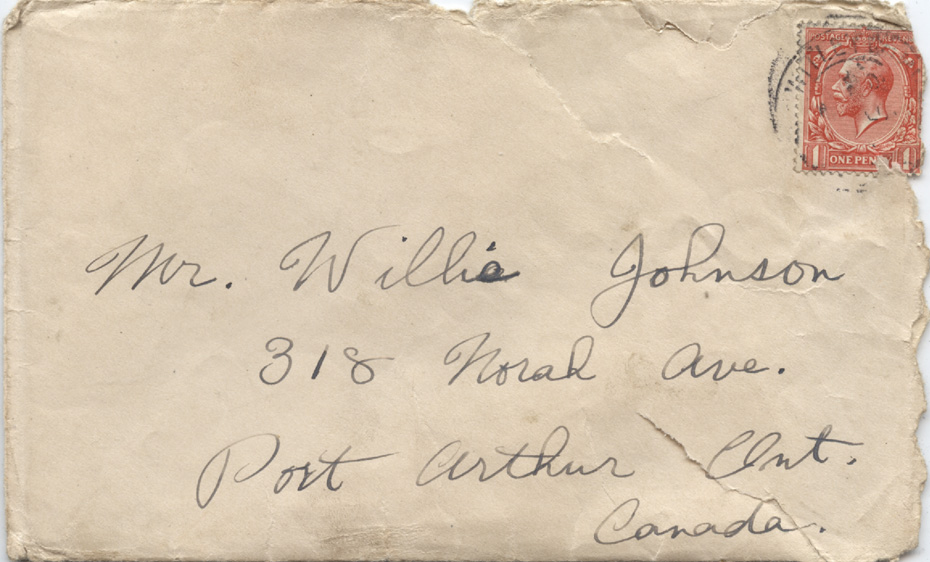 POSTAGE REVENUE
1 ONE PENNY 1
Mr. Willie Johnson
318 Norah Ave.
Port Arthur Ont.
Canada.